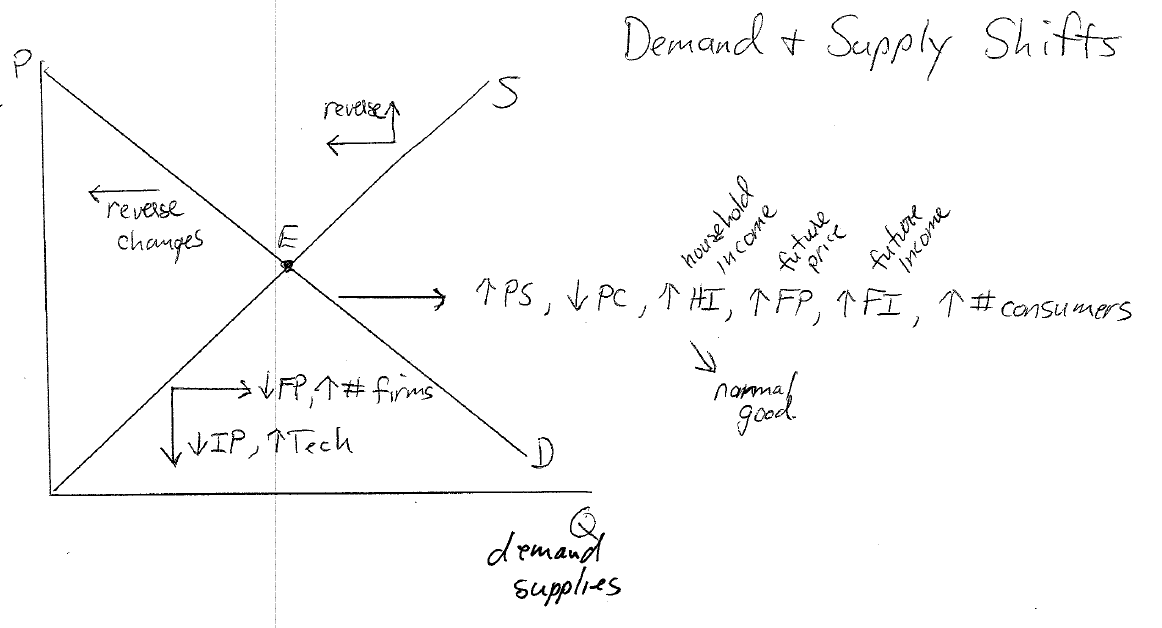 Demand + Supply Shifts
P
S
reverse
reverse
changes
E
household
income
future
price
future
income
↑ PS, ↓ PC, ↑ HI, ↑ FP, ↑ FI, ↑ # consumers
normal
good.
↓ FP, ↑ # firms
↓ IP, ↑ Tech
D
Q
demand
supplies